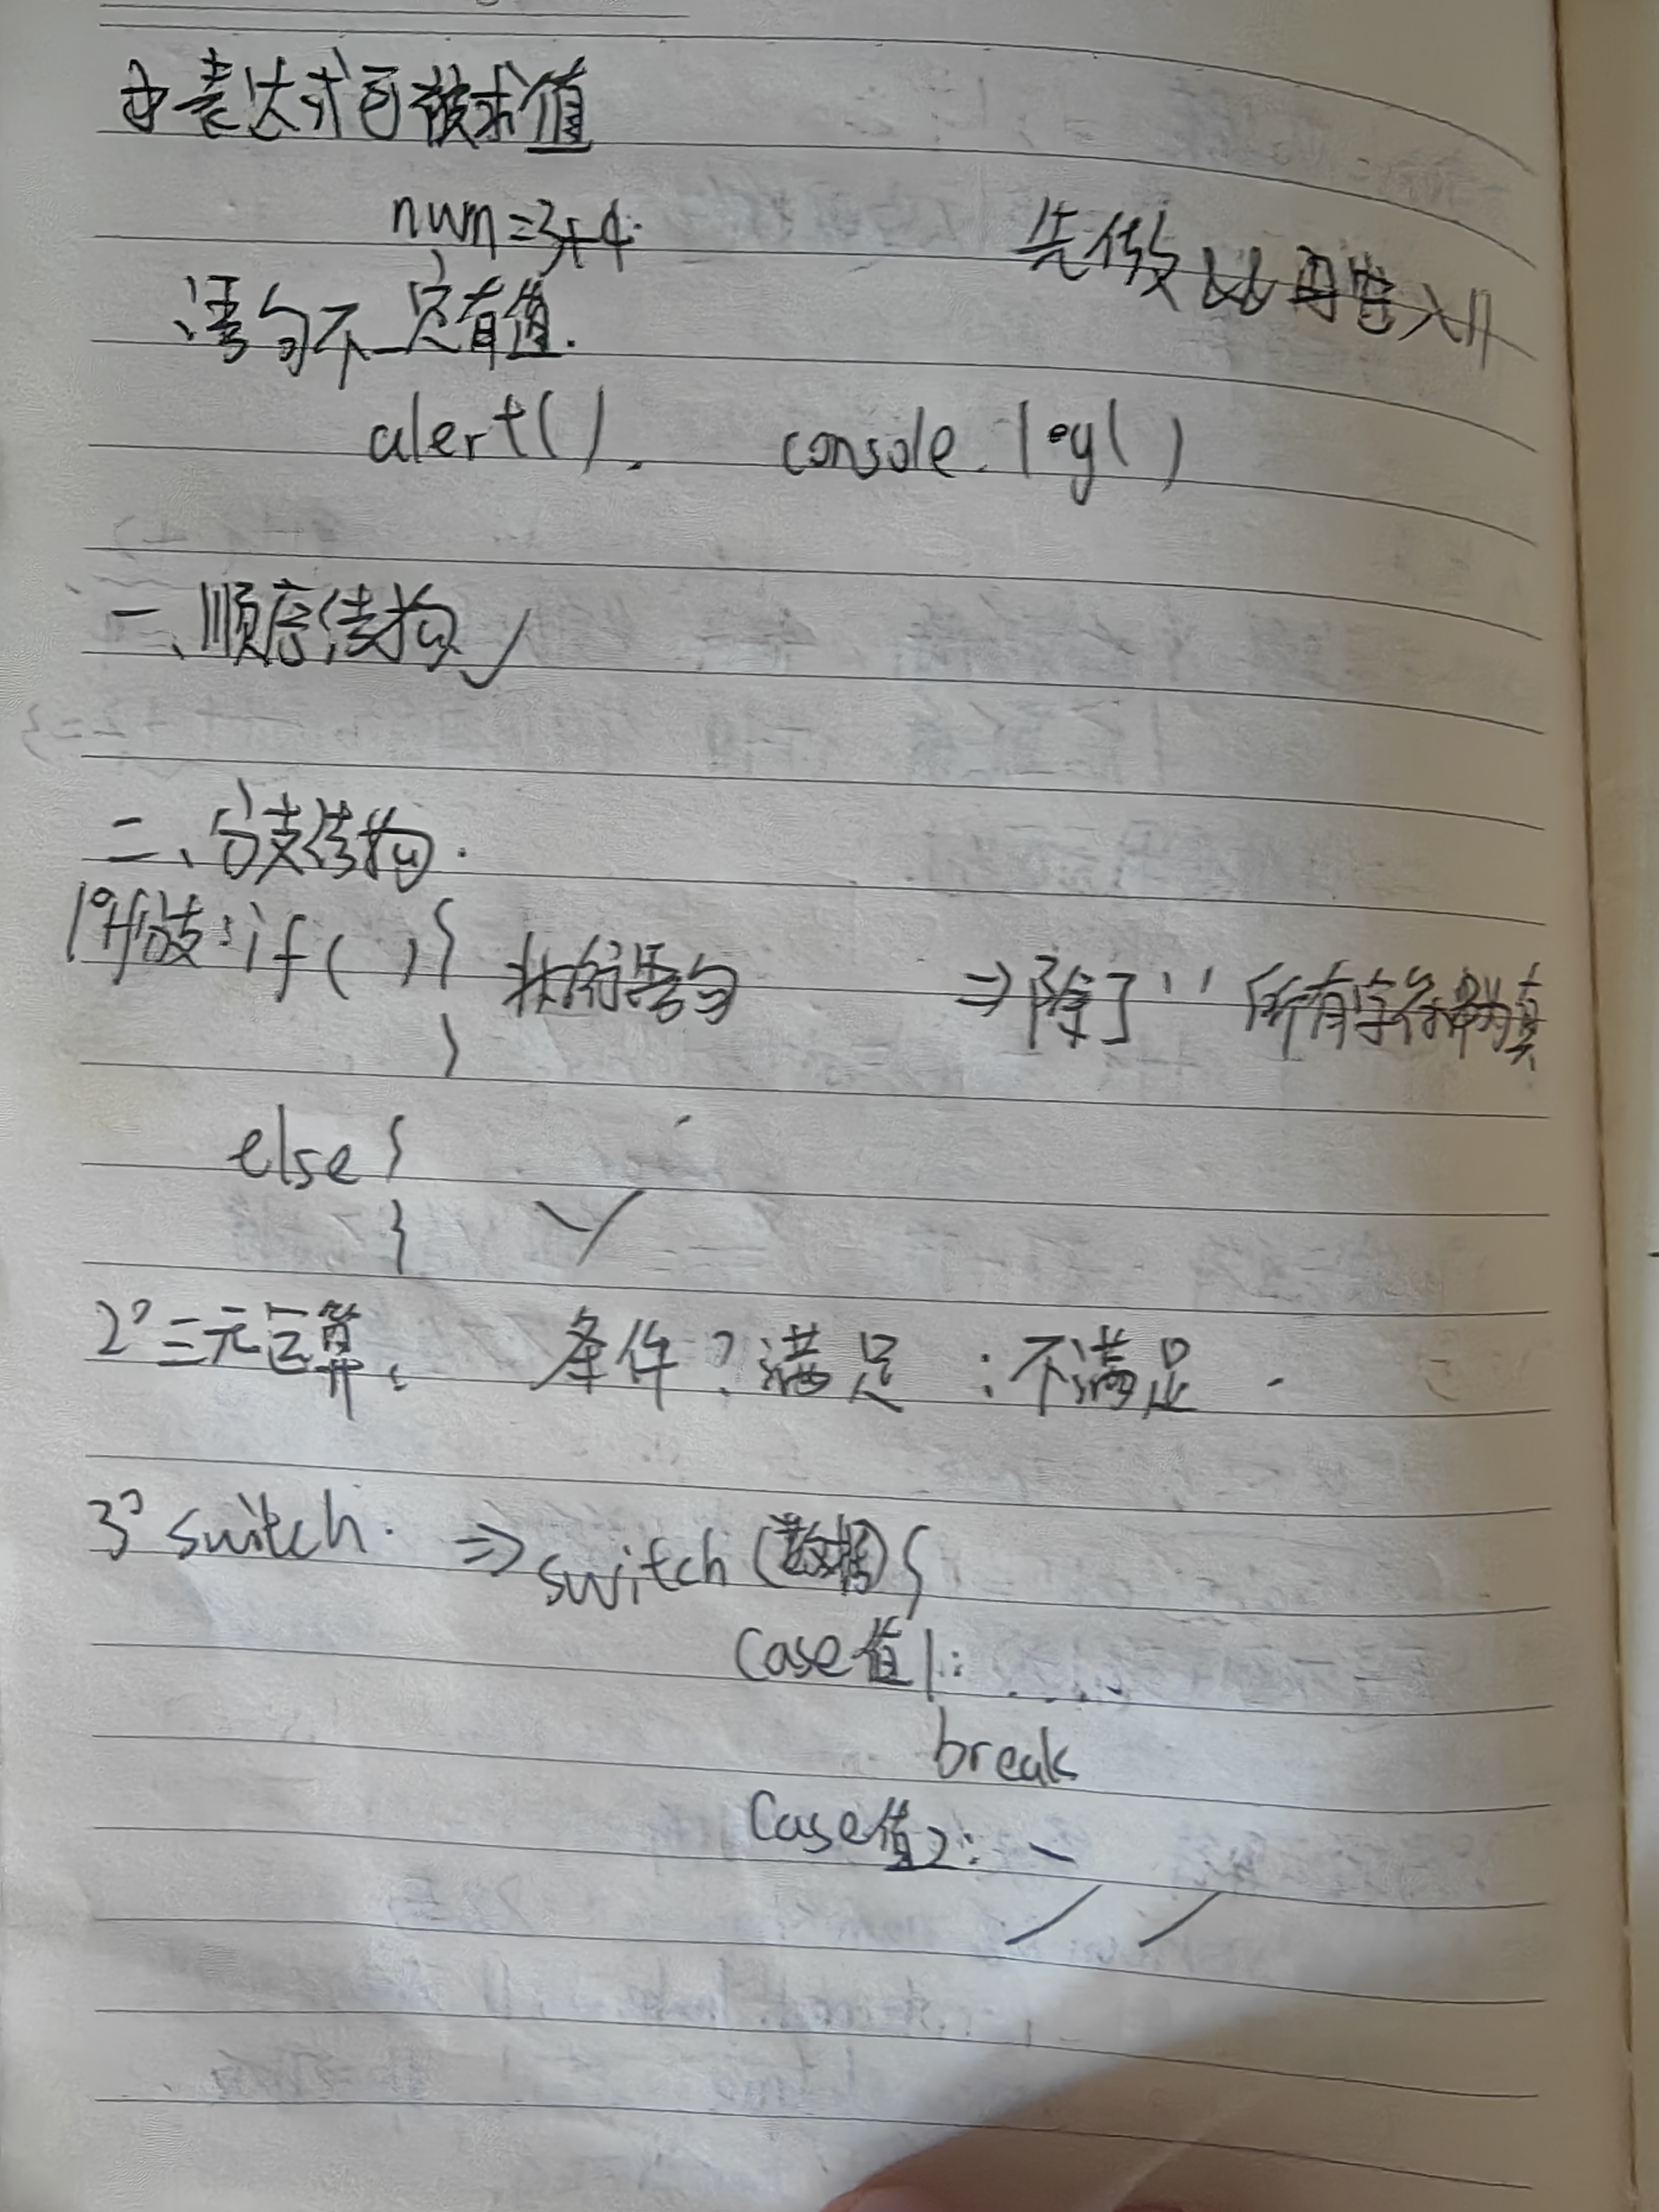 表达式可被求值
num=3+4.
先做&&再写入||
语句不一定有值.
alert(). console.log()
一、顺序结构
二、分支结构.
1° if分支: if( ){ 执行语句 ⇒除了'' 所有字符串都为真
}
else{
}
2° 三元运算: 条件?满足 :不满足.
3° switch. ⇒switch(数据){
case值1: .....
break
case值2: